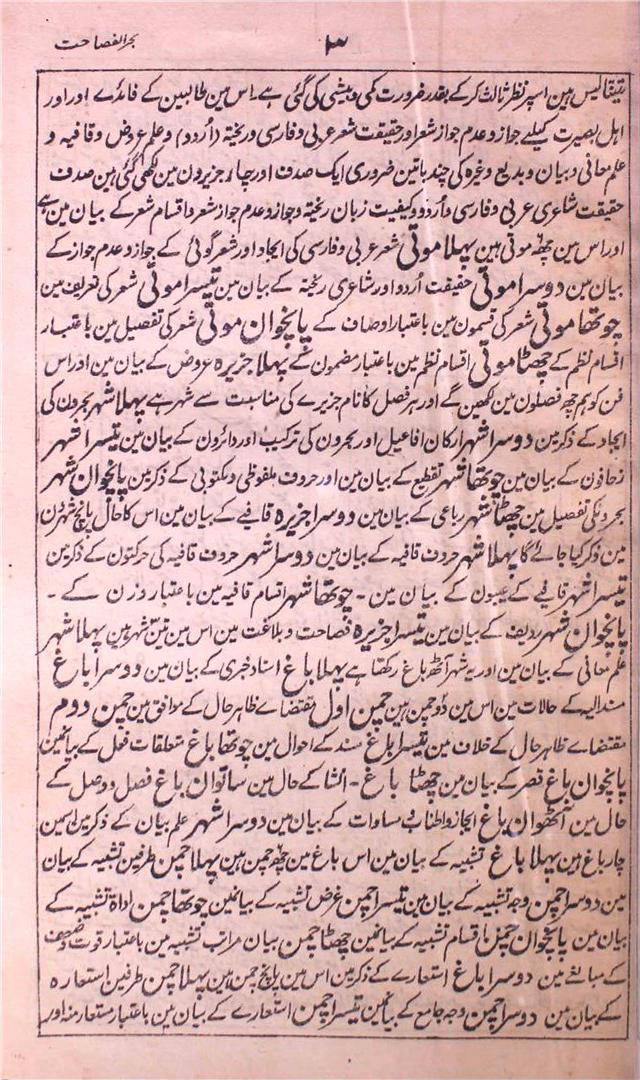 بحر الفصاحت
۳
ہین اسپر نظر ثالث کرکے بقدر ضرورت کمی و بیشی کی گئی ہے۔ اس مین طالبین کے فائدے اور اور
اہل بصیرت کیلیے جواز و عدم جواز شعر اور حقیقت شعر عربی و فارسی و ریختہ (اُردو) و علم عروض و قافیہ و
علم معانی و بیان و بدیع وغیرہ کی چند باتین ضروری ایک صدف اور چار جزیرون مین لکھی گئی ہین صدف
حقیقت شاعری عربی و فارسی و اُردو و کیفیت زبان ریختہ و جواز و عدم جواز شعر و اقسام شعر کے بیان مین ہے
اور اس مین چھ موتی ہین پہلا موتی شعر عربی و فارسی کی ایجاد اور شعر گوئی کے جواز و عدم جواز کے
بیان مین دوسرا موتی حقیقت اُردو اور شاعری ریختہ کے بیان مین تیسرا موتی شعر کی تعریف مین
چوتھا موتی شعر کی قسمون مین باعتبار اوصاف کے پانچوان موتی شعر کی تفصیل مین باعتبار
اقسام نظم کے چھٹا موتی اقسام نظم مین باعتبار مضمون کے پہلا جزیرہ عروض کے بیان مین اور اس
فن کو ہم چھ فصلون مین لکھین گے اور ہر فصل کا نام جزیرے کی مناسبت سے شہر ہے پہلا شہر بحرون کی
ایجاد کے ذکر مین دوسرا شہر ارکان افاعیل اور بحرون کی ترکیب اور دائرون کے بیان مین تیسرا شہر
زحافون کے بیان مین چوتھا شہر تقطیع کے بیان مین اور حروف ملفوظی و مکتوبی کے ذکر مین پانچوان شہر
بحرونکی تفصیل مین چھٹا شہر رباعی کے بیان مین دوسرا جزیرہ قافیے کے بیان مین اس کا حال پانچ شہرون
مین ذکر کیا جائے گا پہلا شہر حروف قافیہ کے بیان مین دوسرا شہر حروف قافیہ کی حرکتون کے ذکر مین
تیسرا شہر قافیے کے عیبون کے بیان مین ۔ چوتھا شہر اقسام قافیہ مین باعتبار وزن کے ۔
پانچوان شہر ردیف کے بیان مین تیسرا جزیرہ فصاحت و بلاغت مین اس مین تین شہر ہین پہلا شہر
علم معانی کے بیان مین اور یہ شہر آٹھ باغ رکھتا ہے پہلا باغ اسناد خبری کے بیان مین دوسرا باغ
مسند الیہ کے حالات مین اس مین دو چمن ہین چمن اول مقتضاے ظاہر حال کے موافق مین چمن دوم
مقتضاے ظاہر حال کے خلاف مین تیسرا باغ مسند کے احوال مین چوتھا باغ متعلقات فعل کے بیانمین
پانچوان باغ قصر کے بیان مین چھٹا باغ ۔ انشا کے حال مین ساتوان باغ فصل و وصل کے
حال مین آٹھوان باغ ایجاز و اطناب و مساوات کے بیان مین دوسرا شہر علم بیان کے ذکر مین اسمین
چار باغ ہین پہلا باغ تشبیہ کے بیان مین اس باغ مین چھ چمن ہین پہلا چمن طرفین تشبیہ کے بیان
مین دوسرا چمن وجہ تشبیہ کے بیان مین تیسرا چمن غرض تشبیہ کے بیانمین چوتھا چمن اداۃ تشبیہ کے
بیان مین پانچوان چمن اقسام تشبیہ کے بیانمین چھٹا چمن بیان مراتب تشبیہ مین باعتبار قوت و ضعف
کے مبالغے مین دوسرا باغ استعارے کے ذکر مین اس مین پانچ چمن ہین پہلا چمن طرفین استعارہ
کے بیان مین دوسرا چمن وجہ جامع کے بیانمین تیسرا چمن استعارے کے بیان مین باعتبار مستعار منہ اور